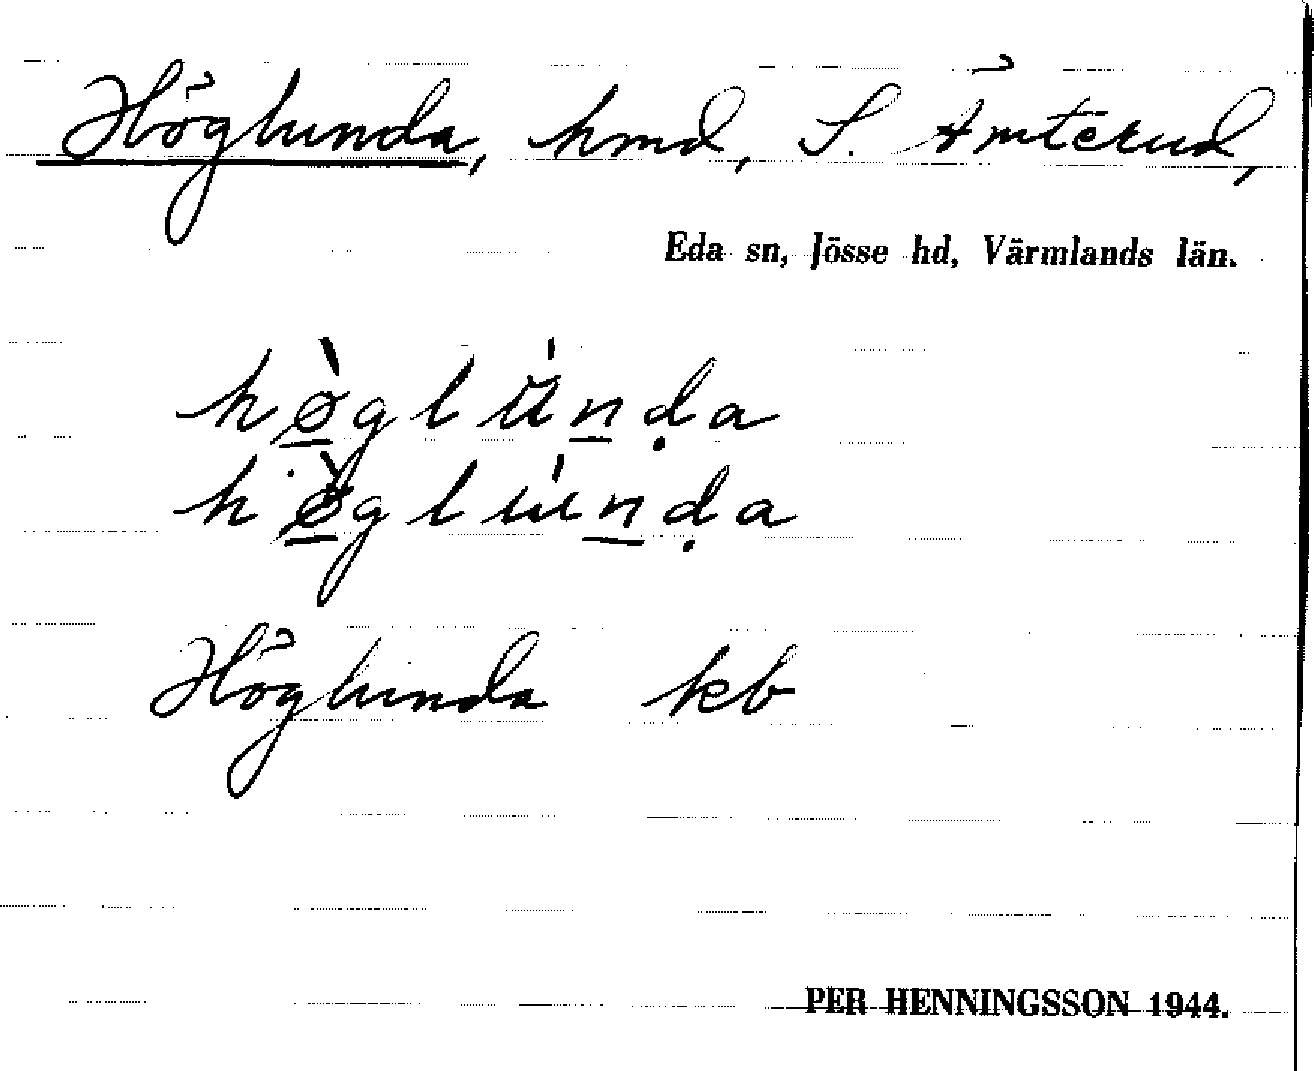 Höglunda, hmd, S. Åmterud,
Eda sn, Jösse hd, Värmlands län.
hø̀glŭ́nḍa
hø̀glúnḍa
Höglunda kb
PER HENNINGSSON 1944.